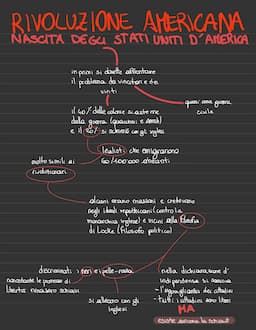 RIVOLUZIONE AMERICANA
NASCITA DEGLI STATI UNITI D'AMERICA
in primis si dovette affrontare
il problema dei vincitori e dei
vinti
quasi una guerra
civile
il 40% delle colonie si astenne
dalla guerra (quaccheri e amish)
e il 20% si schierò con gli inglesi
lealisti che emigrarono
60/100 000 abitanti
molto simili ai
rivoluzionari
alcuni erano massoni e credevano
negli ideali repubblicani (contro la
monarchia inglese) e vicini alla filosofia
di Locke (filosofo politico)
discriminati i neri e i pelle-rossa
nonostante le promesse di
libertà rimasero schiavi
si allearono con gli
inglesi
nella dichiarazione d'
indipendenza si sanciva
- l'uguaglianza dei cittadini
- tutti i cittadini sono liberi
MA
esiste ancora la schiavitù